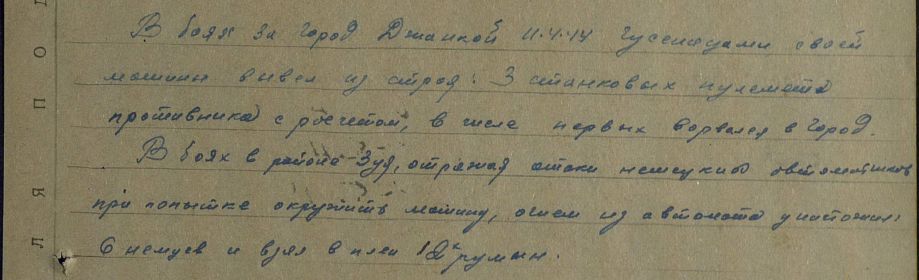 В боях за город Джанкой 11.4.44 гусеницами своей
машины вывел из строя: 3 станковых пулемета
противника с расчетом, в числе первых ворвался в город.
В боях в районе Зуя, отражая атаки немецких автоматчиков
при попытке окружить машину, огнем из автомата уничтожил:
6 немцев и взял в плен румын.
Л Я П О